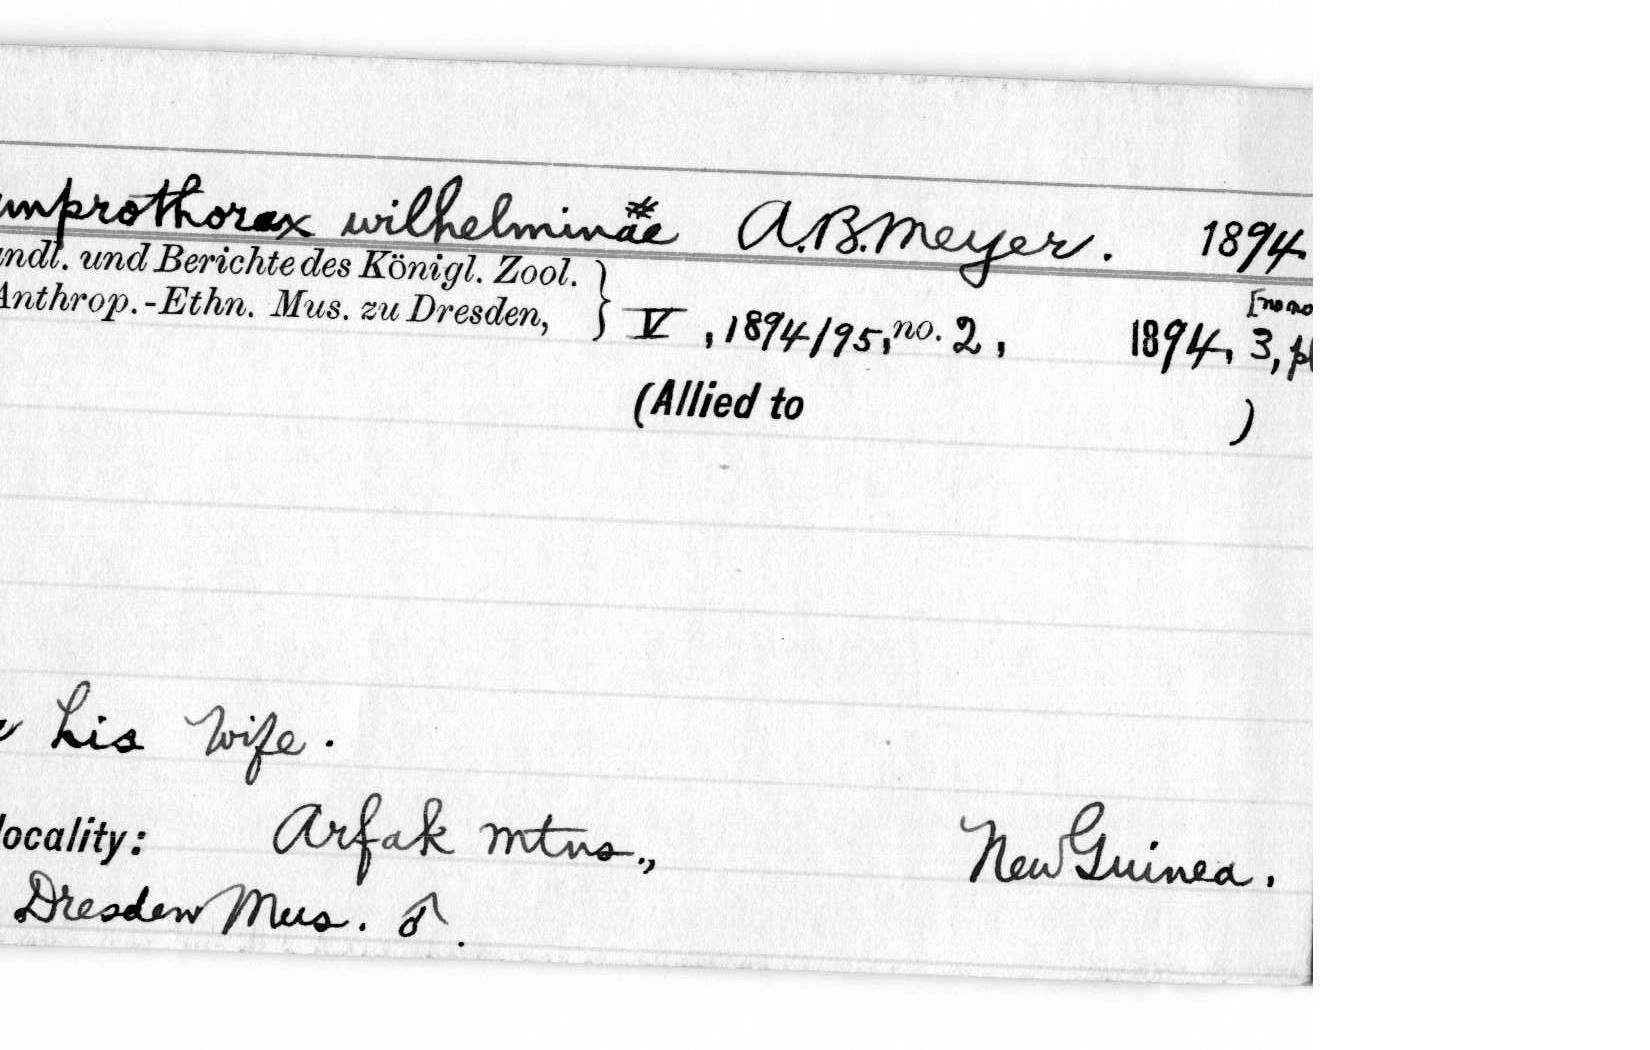 mprothorax wilhelminae A.B.Meyer. 1894
ndl. und Berichte des Königl. Zool.
Anthrop.-Ethn. Mus. zu Dresden, } V, 1894/95, no. 2, 1894, 3, pl
[no no
(Allied to )
his wife.
locality: Arfak mtns., New Guinea.
Dresden Mus. ♂.